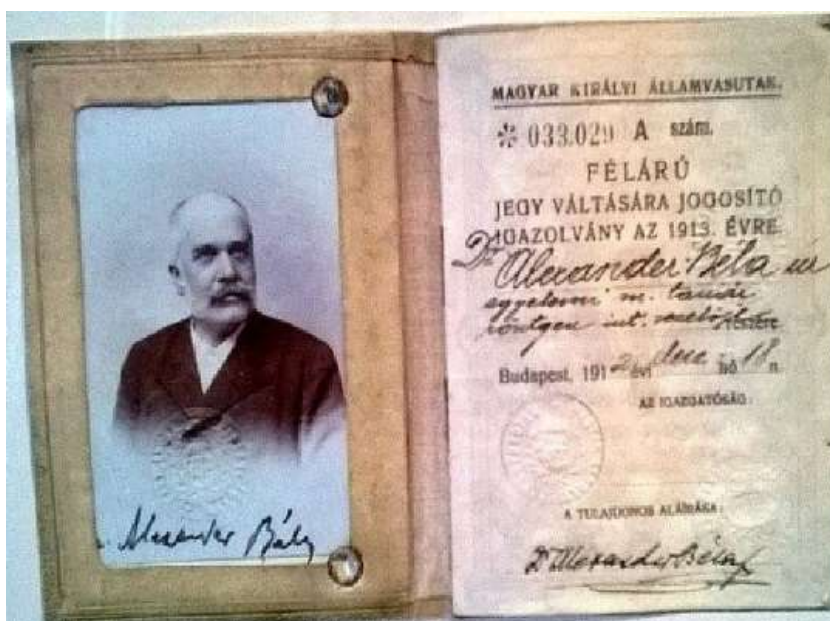 Alexander Béla
MAGYAR KIRÁLYI ÁLLAMVASUTAK.
* 033.029 A szám.
FÉLÁRÚ
JEGY VÁLTÁSÁRA JOGOSÍTÓ
IGAZOLVÁNY AZ 1913. ÉVRE
Dr. Alexander Béla úr
egyetemi m. tanár
röntgen int. RÉSZÉRE
Budapest, 1912 évi dec hó 18 n.
AZ IGAZGATÓSÁG:
A TULAJDONOS ALÁÍRÁSA:
Dr Alexander Béla